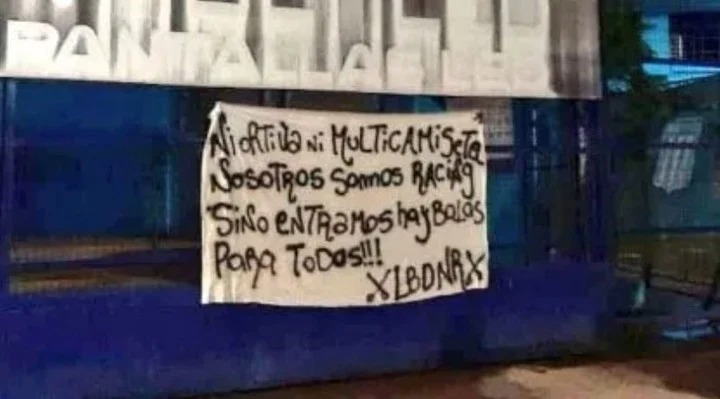 PANTALLAS LED
Ni ORTiva Ni MULTiCAMiSeTa
NOSOTROS somos RACiNg
SiNO eNTRamos hay BaLas
PaRa TODOS!!!
XLBDNRX